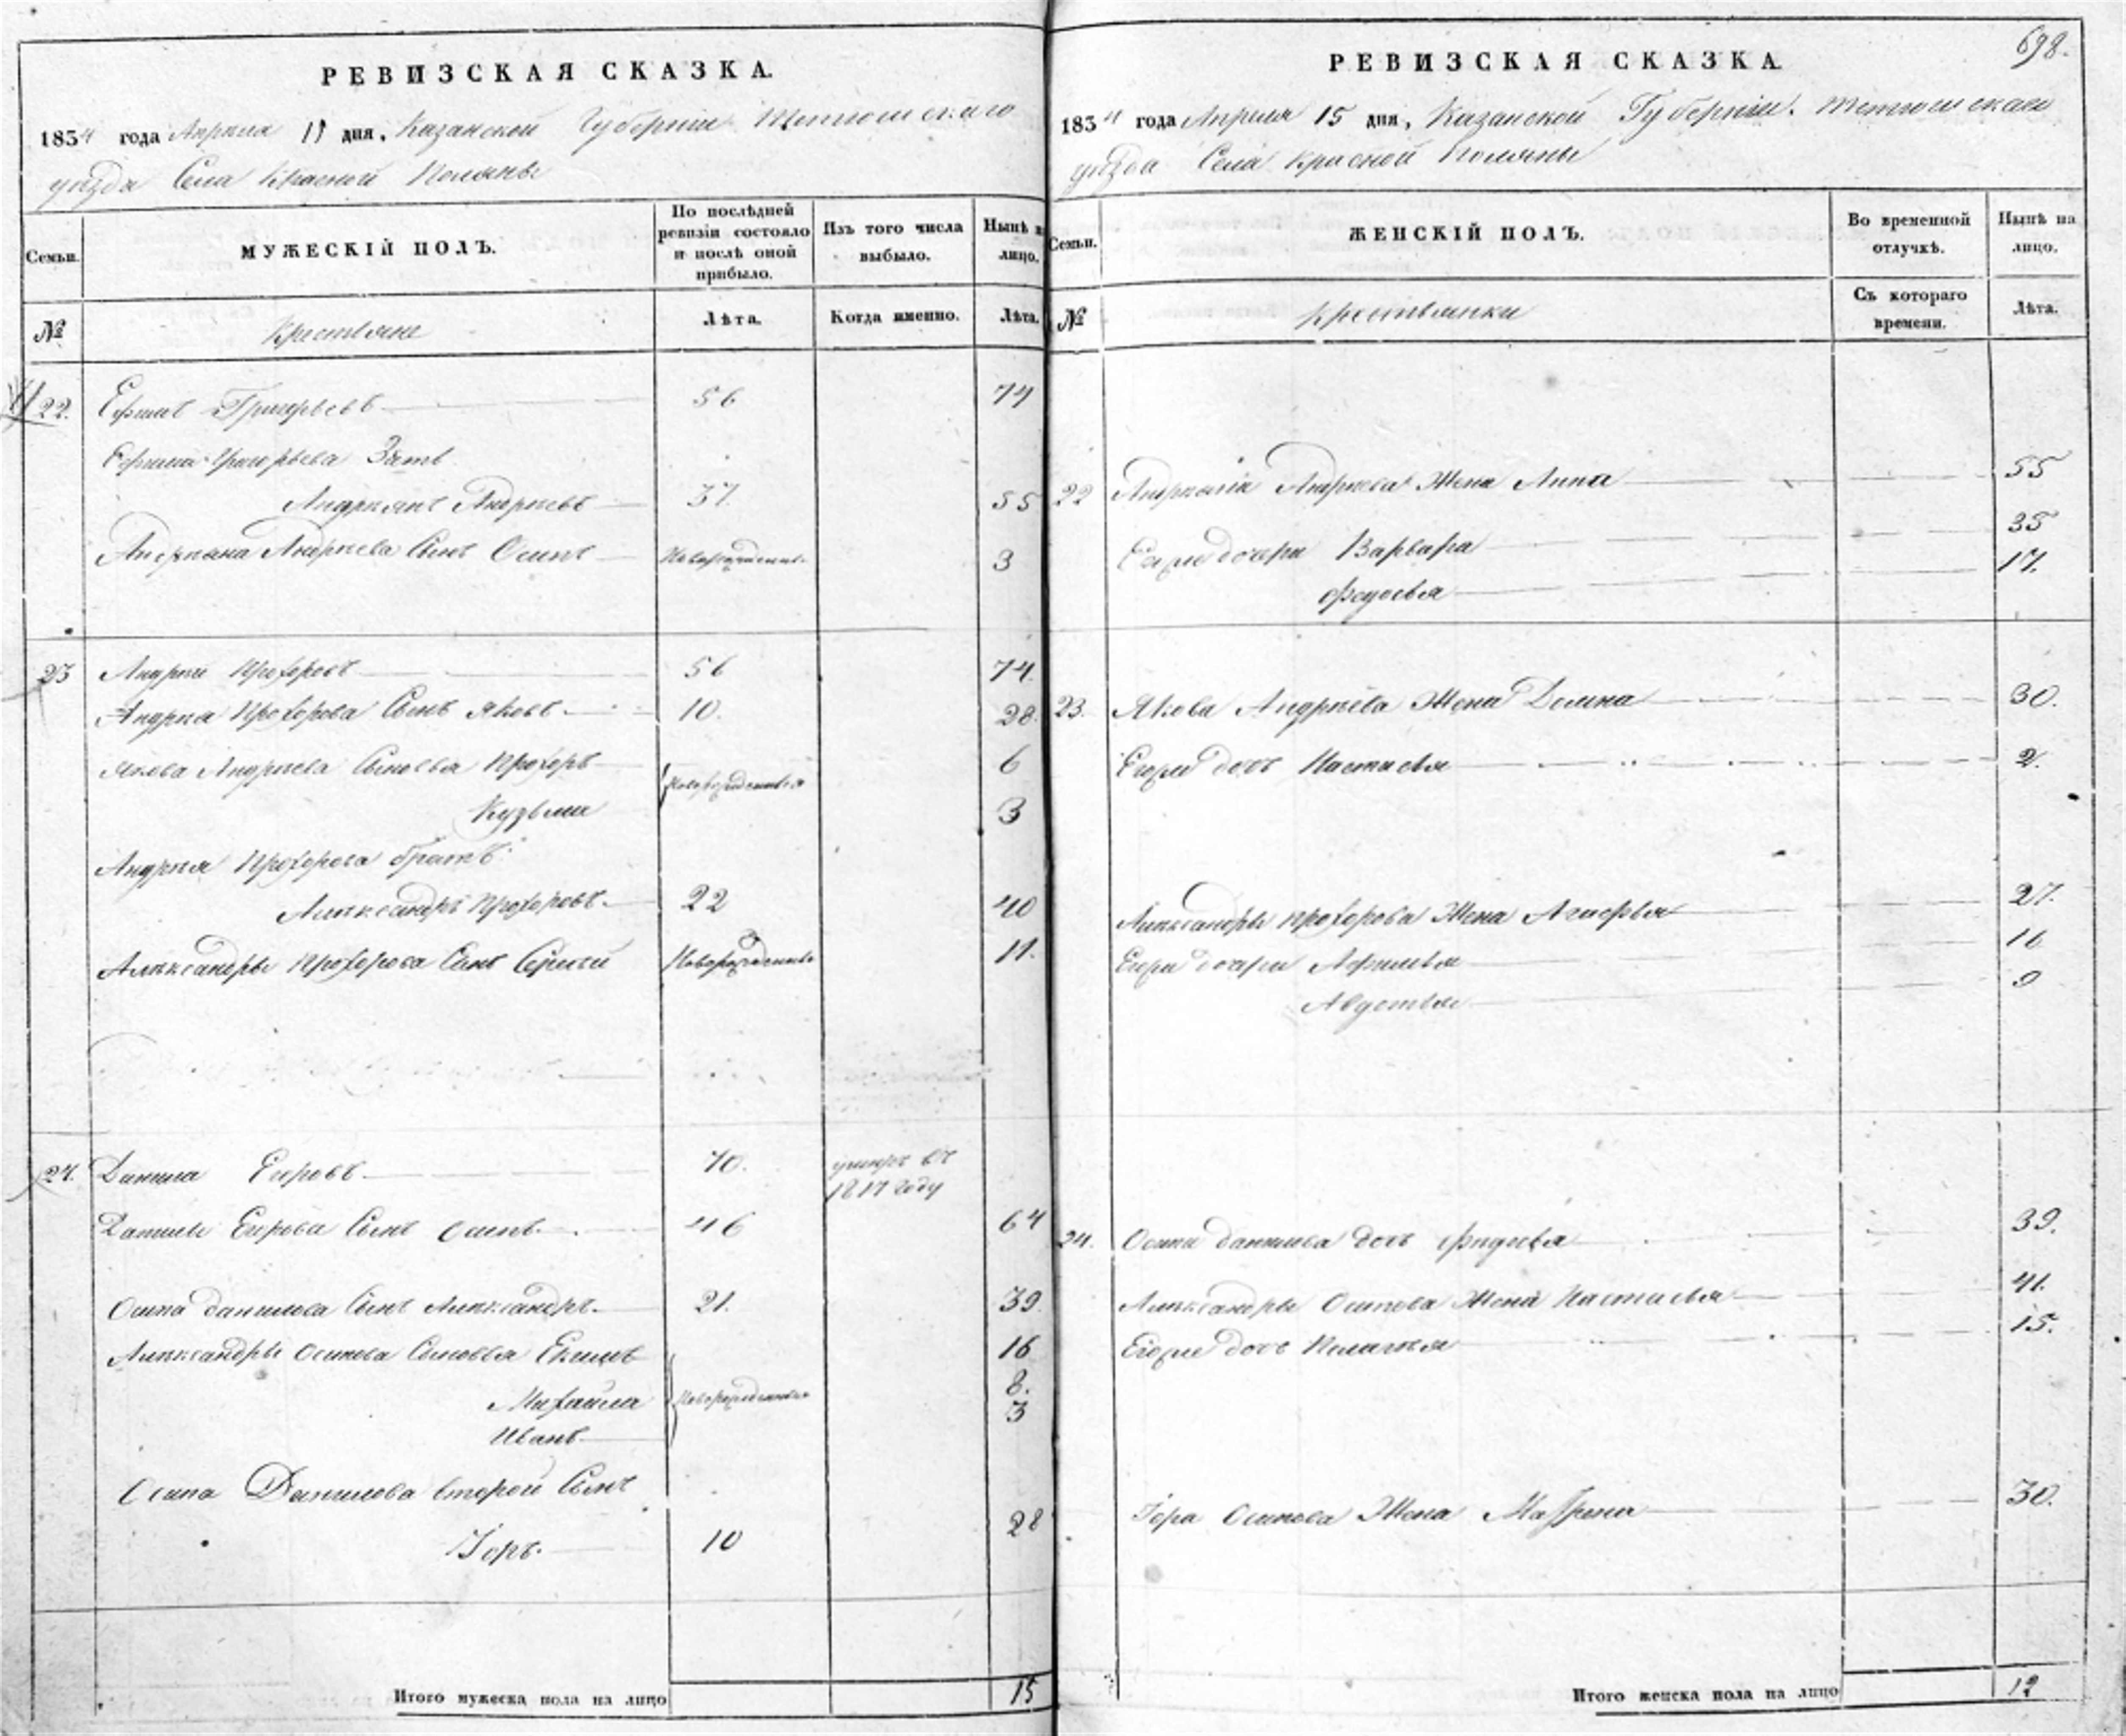 РЕВИЗСКАЯ СКАЗКА.
1834 года Апреля 15 дня, Казанской Губернии Тетюшскаго
уѣзда Села Красной Поляны
Семьи.
МУЖЕСКІЙ ПОЛЪ.
По послѣдней ревизіи состояло и послѣ оной прибыло.
Изъ того числа выбыло.
Нынѣ на лицо.
№
Крестьяне
Лѣта.
Когда именно.
Лѣта.
22. Ефимъ Григорьевъ 56 74
Ефима Григорьева Зять
Андриянъ Андреевъ 37. 55
Андрияна Андреева Сынъ Осипъ Новорожденный 3
23 Андрей Прохоровъ 56 74.
Андрея Прохорова Сынъ Яковъ 10. 28.
Якова Андреева Сыновья Прохоръ 6
Новорожденныя
Кузьма 3
Андрея Прохорова братъ
Александръ Прохоровъ. 22 40
Александры Прохорова Сынъ Сергей Новорожденный 11.
24. Данила Егоровъ 70. умеръ въ
1817 году
Данилы Егорова Сынъ Осипъ 46 64
Осипа Данилова Сынъ Александръ. 21. 39.
Александры Осипова Сыновья Екимъ 16
Михайла Новорожденныя 8.
Иванъ 3
Осипа Данилова второй Сынъ
Іоръ. 10 28
Итого мужеска пола на лицо 15
698.
РЕВИЗСКАЯ СКАЗКА
1834 года Апреля 15 дня, Казанской Губерніи. Тетюшскаго
уѣзда Села Красной Поляны
Семьи.
ЖЕНСКІЙ ПОЛЪ.
Во временной отлучкѣ.
Нынѣ на лицо.
№
Крестьянки
Съ котораго времени.
Лѣта.
22 Андреяна Андреева Жена Анна 55
Его дочери Варвара 35
Федосья 17.
23. Якова Андреева Жена Домна 30.
Его дочь Настасья 2.
Александры Прохорова Жена Агафья 27.
Его дочери Афимья 16
Авдотья 9
24. Осипа Данилова дочь Федосья 39.
Александры Осипова Жена Настасья 41.
Его дочь Пелагея 15.
Іора Осипова Жена Матрена 30.
Итого женска пола на лицо 12